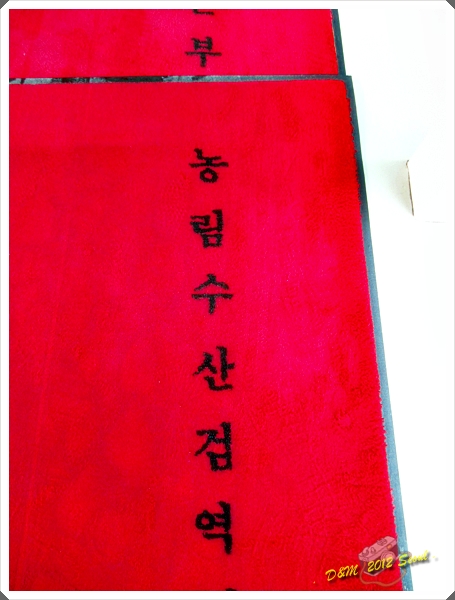 부
농림수산검역
D&M 2012 Seoul.